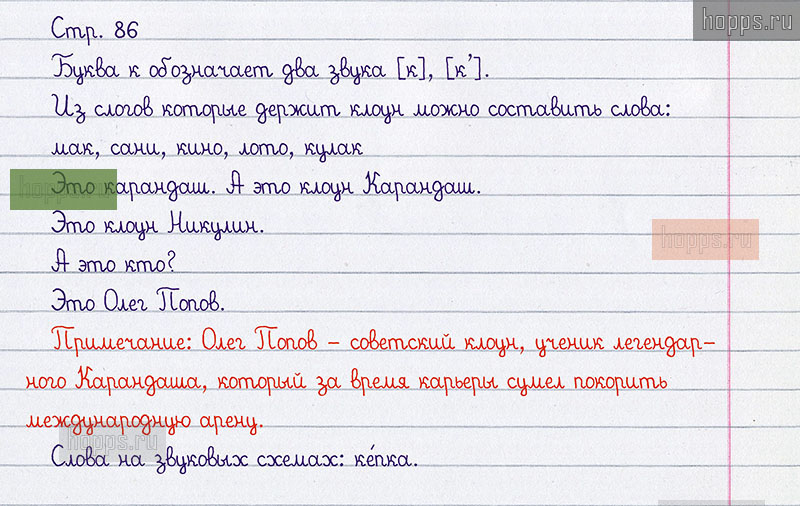 hopps.ru
Стр. 86
Буква к обозначает два звука [к], [к’].
Из слогов которые держит клоун можно составить слова:
мак, сани, кино, лото, кулак
Это карандаш. А это клоун Карандаш.
hopps.ru
Это клоун Никулин.
hopps.ru
А это кто?
Это Олег Попов.
Примечание: Олег Попов – советский клоун, ученик легендар-
ного Карандаша, который за время карьеры сумел покорить
международную арену.
hopps.ru
Слова на звуковых схемах: ке́пка.